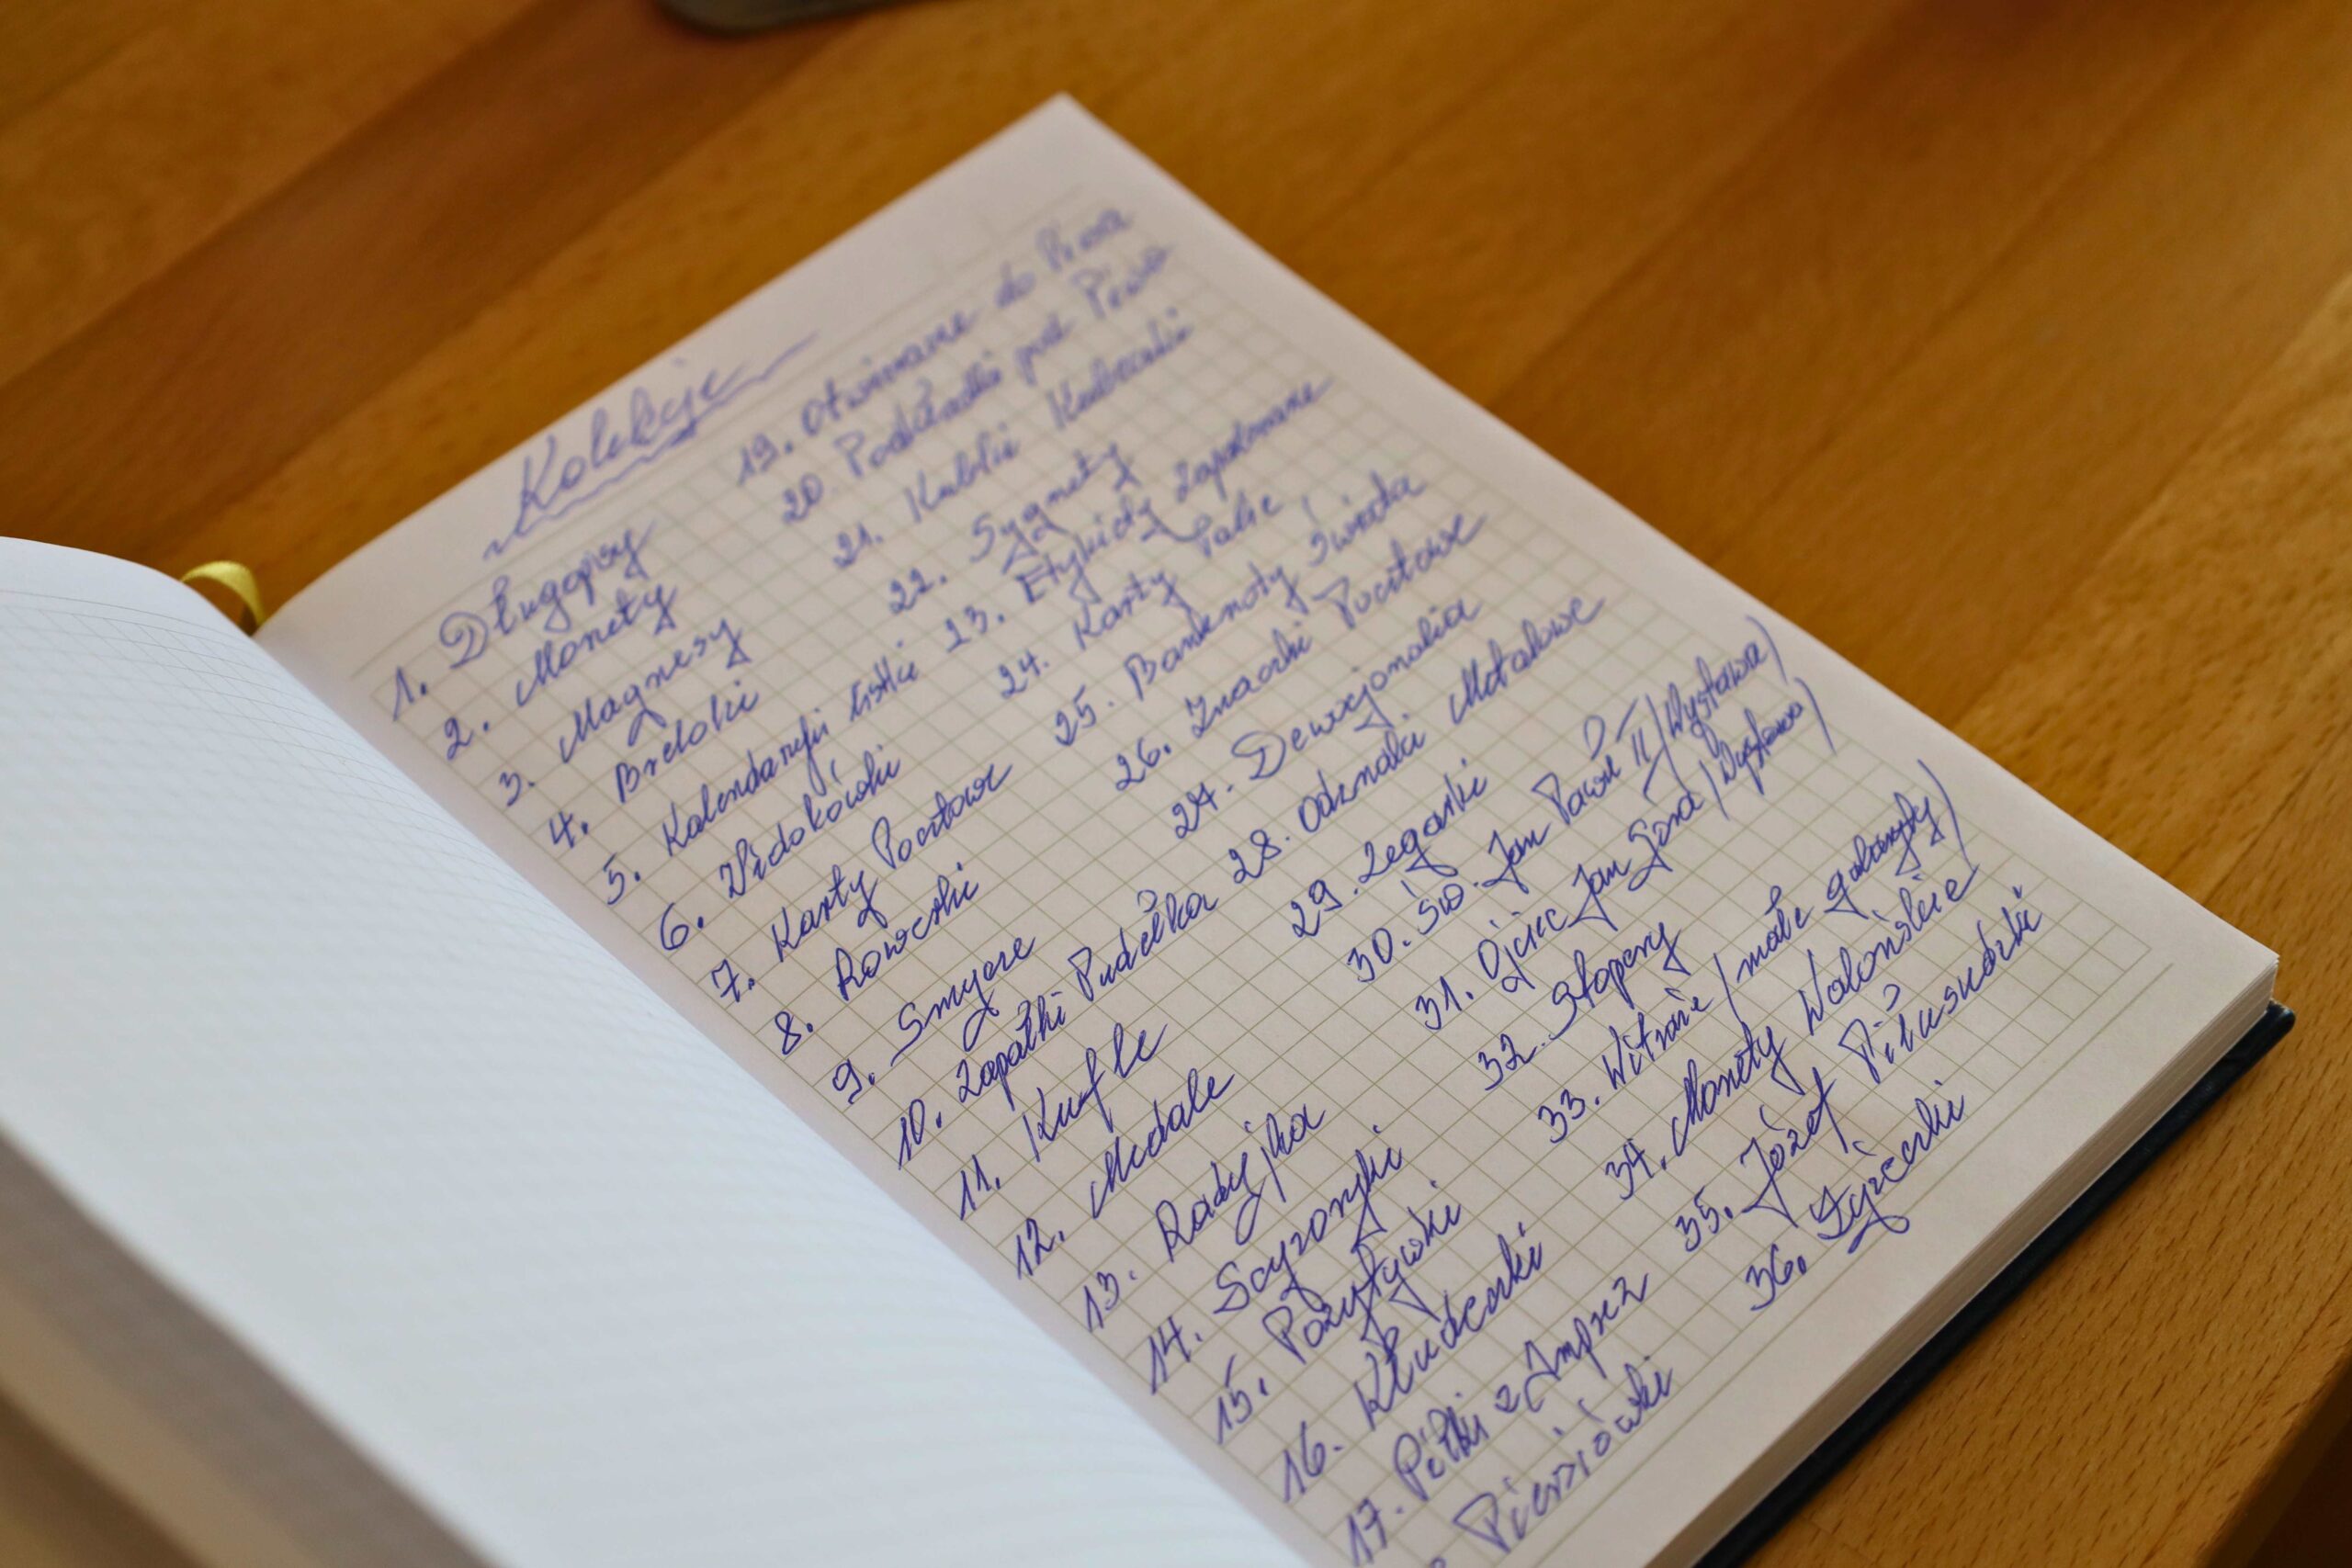 Kolekcje
1. Długopisy
2. Monety
3. Magnesy
4. Breloki
5. Kalendarzyki listki
6. Widokówki
7. Karty Pocztowe
8. Rowerki
9. Smycze
10. Zapałki Pudełka
11. Kufle
12. Medale
13. Radyjka
14. Scyzoryki
15. Pozytywki
16. Kłudeczki
17. Piłki z Imprez
Piersiówki
19. Otwieracze do Piwa
20 Podkładki pod Piwo
21. Kubki Kubeczki
22. Sygnety
23. Etykiety Zapałczane
24. Karty Talie
25. Banknoty Świata
26. Znaczki Pocztowe
27. Dewocjonalia
28. Odznaki. Metalowe
29. Zegarki
30. Św. Jan Paweł II (Wystawa)
31. Ojciec Jan Góra (Wystawa)
32. Stopery
33. Witraże (małe gabaryty)
34. Monety Walońskie
35. Józef Piłusudzki
36. Łyżeczki